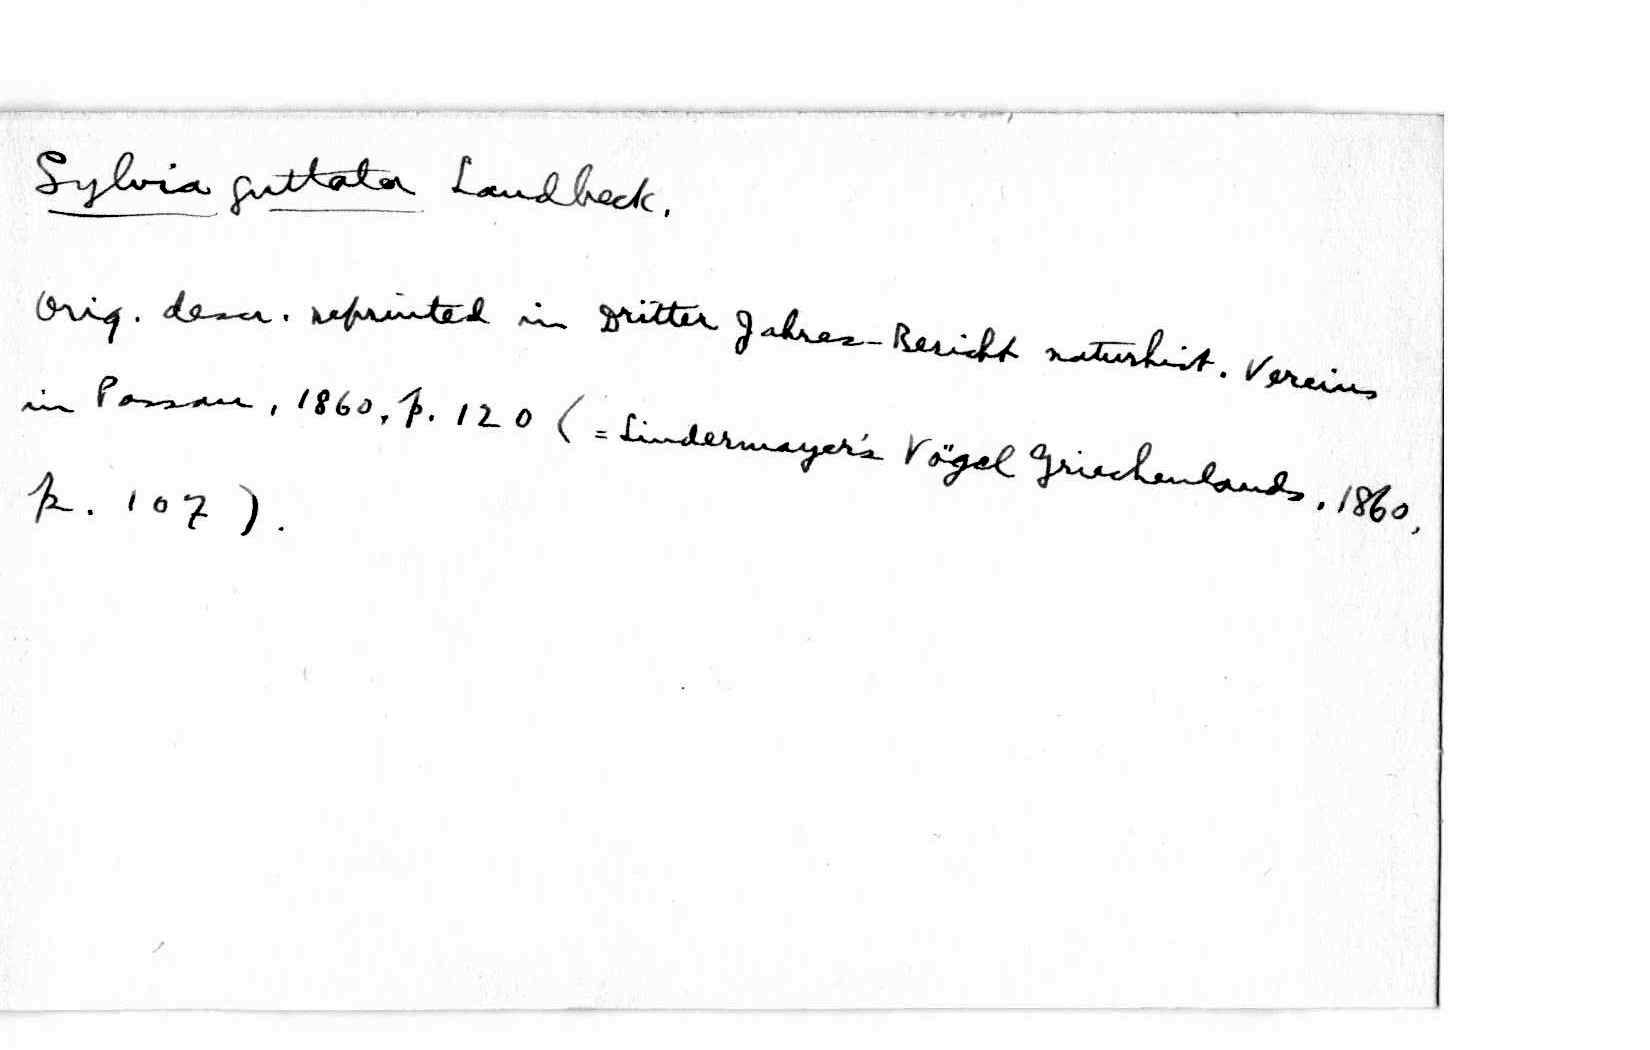 Sylvia guttata Landbeck.
Orig. descr. reprinted in Dritter Jahres-Bericht naturhist. Vereins
in Passau, 1860, p. 120 (= Lindermayer's Vögel Griechenlands, 1860,
p. 107).